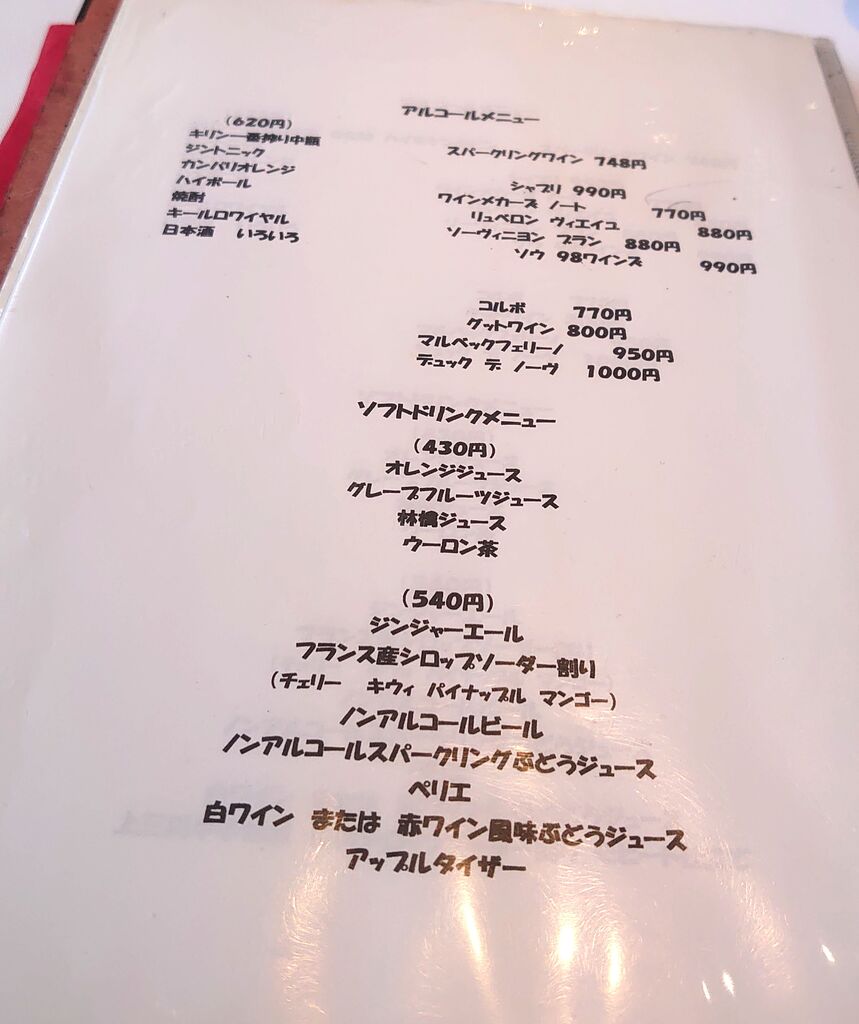 アルコールメニュー
(620円)
キリン一番搾り中瓶
ジントニック
カンパリオレンジ
ハイボール
焼酎
キールロワイヤル
日本酒 いろいろ
スパークリングワイン 748円
シャブリ 990円
ワインメカーズ ノート 770円
リュベロン ヴィエイユ 880円
ソーヴィニヨン ブラン 880円
ソウ 98ワインズ 990円
コルボ 770円
グットワイン 800円
マルベックフェリーノ 950円
デュック デ ノーヴ 1000円
ソフトドリンクメニュー
(430円)
オレンジジュース
グレープフルーツジュース
林檎ジュース
ウーロン茶
(540円)
ジンジャーエール
フランス産シロップソーダー割り
(チェリー キウィ パイナップル マンゴー)
ノンアルコールビール
ノンアルコールスパークリングぶどうジュース
ペリエ
白ワイン または 赤ワイン風味ぶどうジュース
アップルタイザー